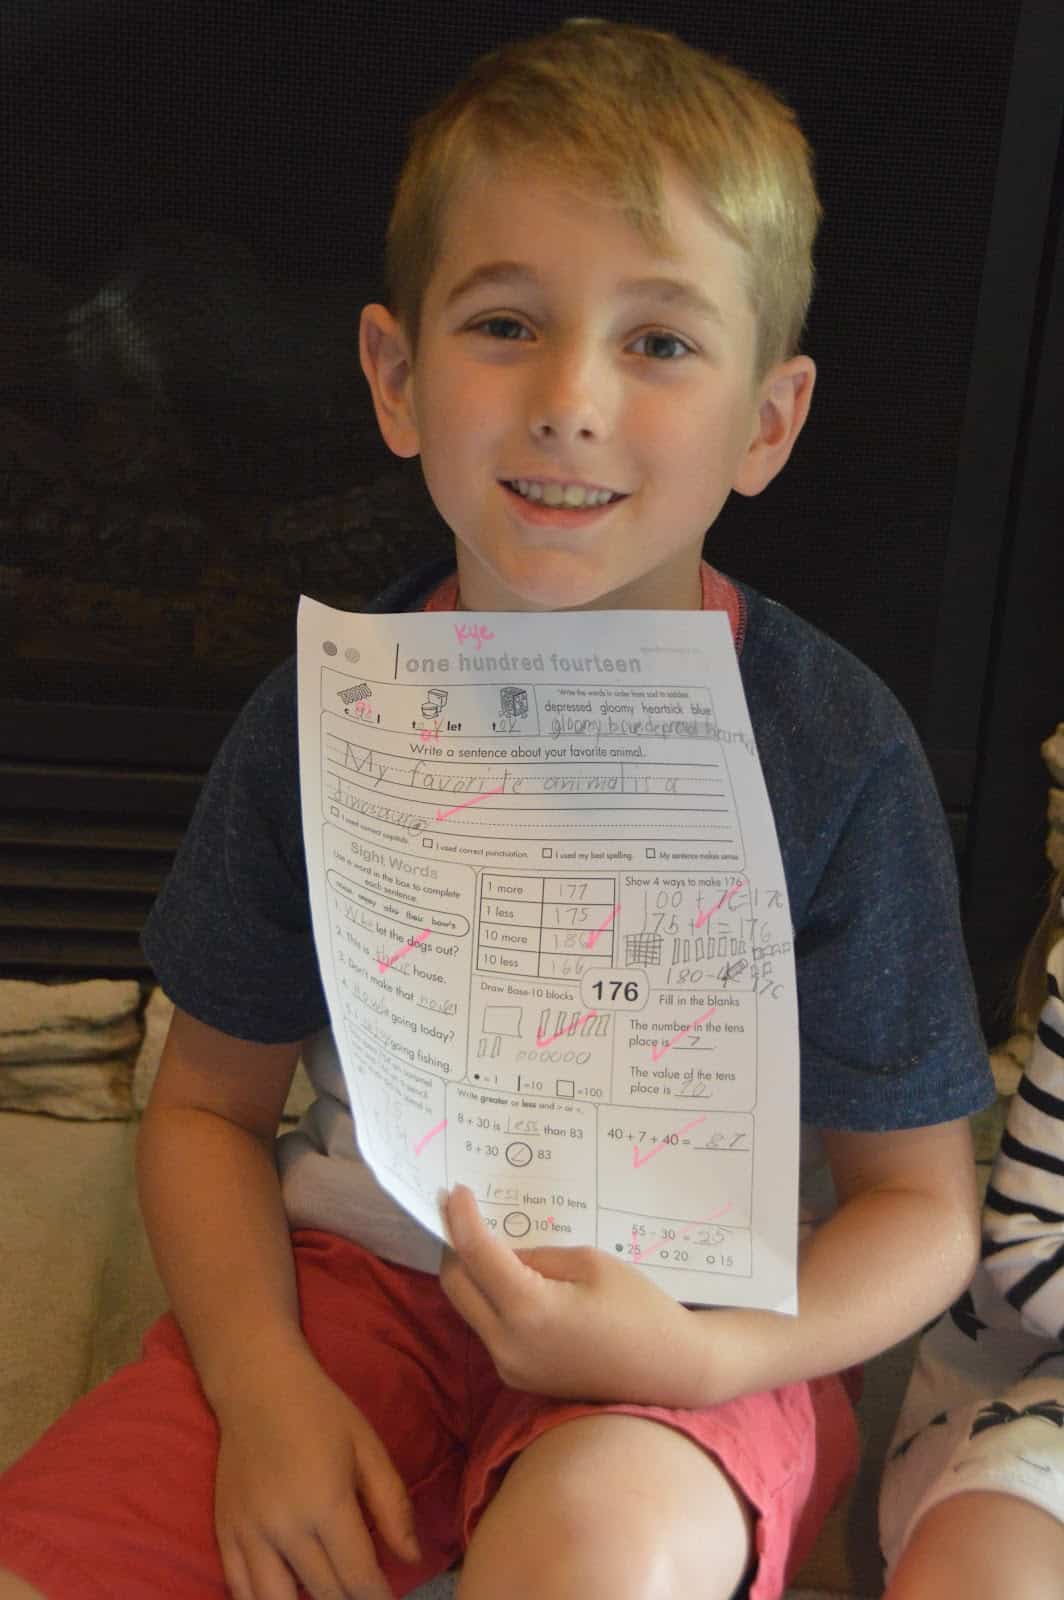 Kye
one hundred fourteen
*Write the words in order from sad to saddest.
depressed gloomy heartsick blue
gloomy blue
t l
t let
t oy
Write a sentence about your favorite animal.
My favorite animal is a
dinosaur
I used correct capitals.
I used correct punctuation.
I used my best spelling.
My sentence makes sense.
Sight Words
Use a word in the box to complete
each sentence.
their
1. Who let the dogs out?
2. This is their house.
3. Don't make that
4. it going today?
5. going fishing.
1 more 177
1 less 175
10 more 186
10 less 166
Show 4 ways to make 176
100 + 76 = 176
175 + 1 = 176
180 - 4
176
Draw Base-10 blocks
= 1 = 10 = 100
176
Fill in the blanks
The number in the tens
place is 7.
The value of the tens
place is 70.
Write greater or less and > or <.
8 + 30 is less than 83
8 + 30 < 83
less than 10 tens
99 10 tens
40 + 7 + 40 = 87
55 - 30 = 25
25 20 15